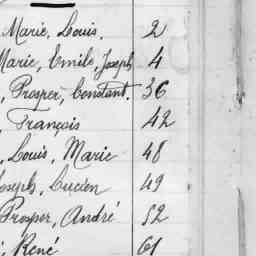 Marie, Louis. 2
Marie, Emile, Joseph 4
, Prosper, Constant. 36
, François 42
, Louis, Marie 48
Joseph, Lucien 49
Prosper, André 52
, René 61